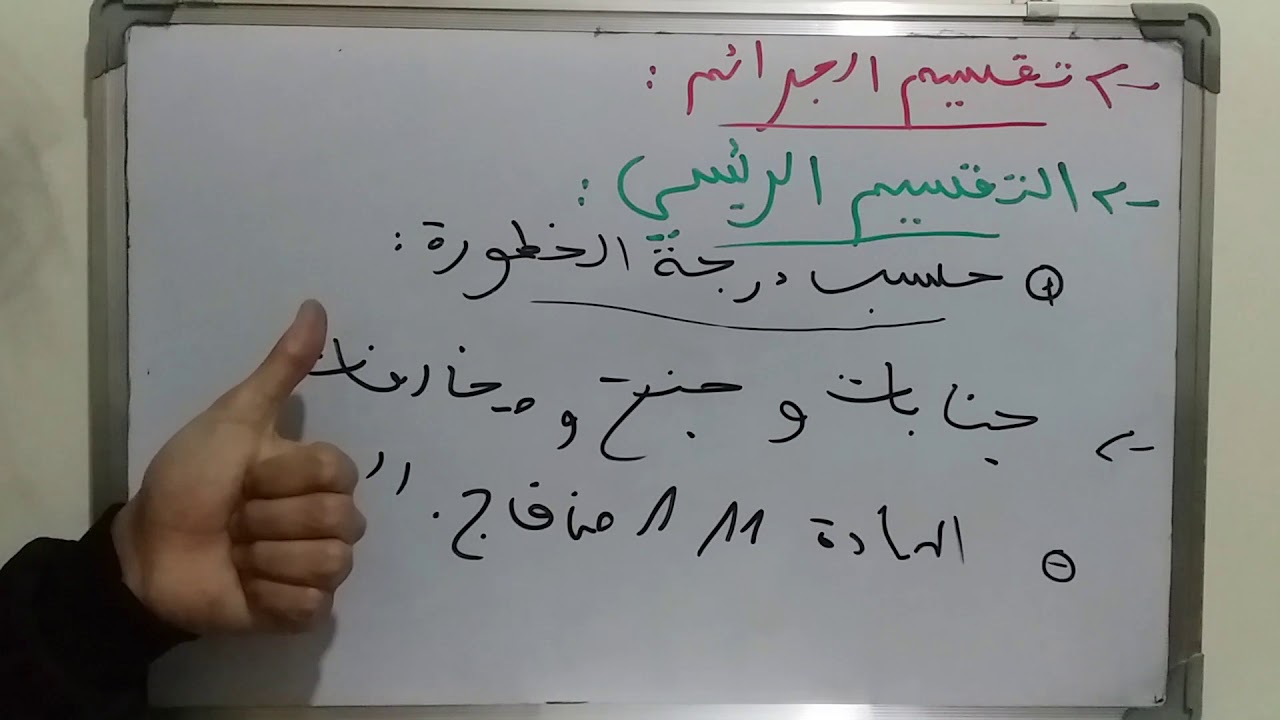 تقسيم الجرائم :
التقسيم الرئيسي :
حسب درجة الخطورة :
جنايات و جنح و مخالفات
المادة 111 من ق ا ج . "